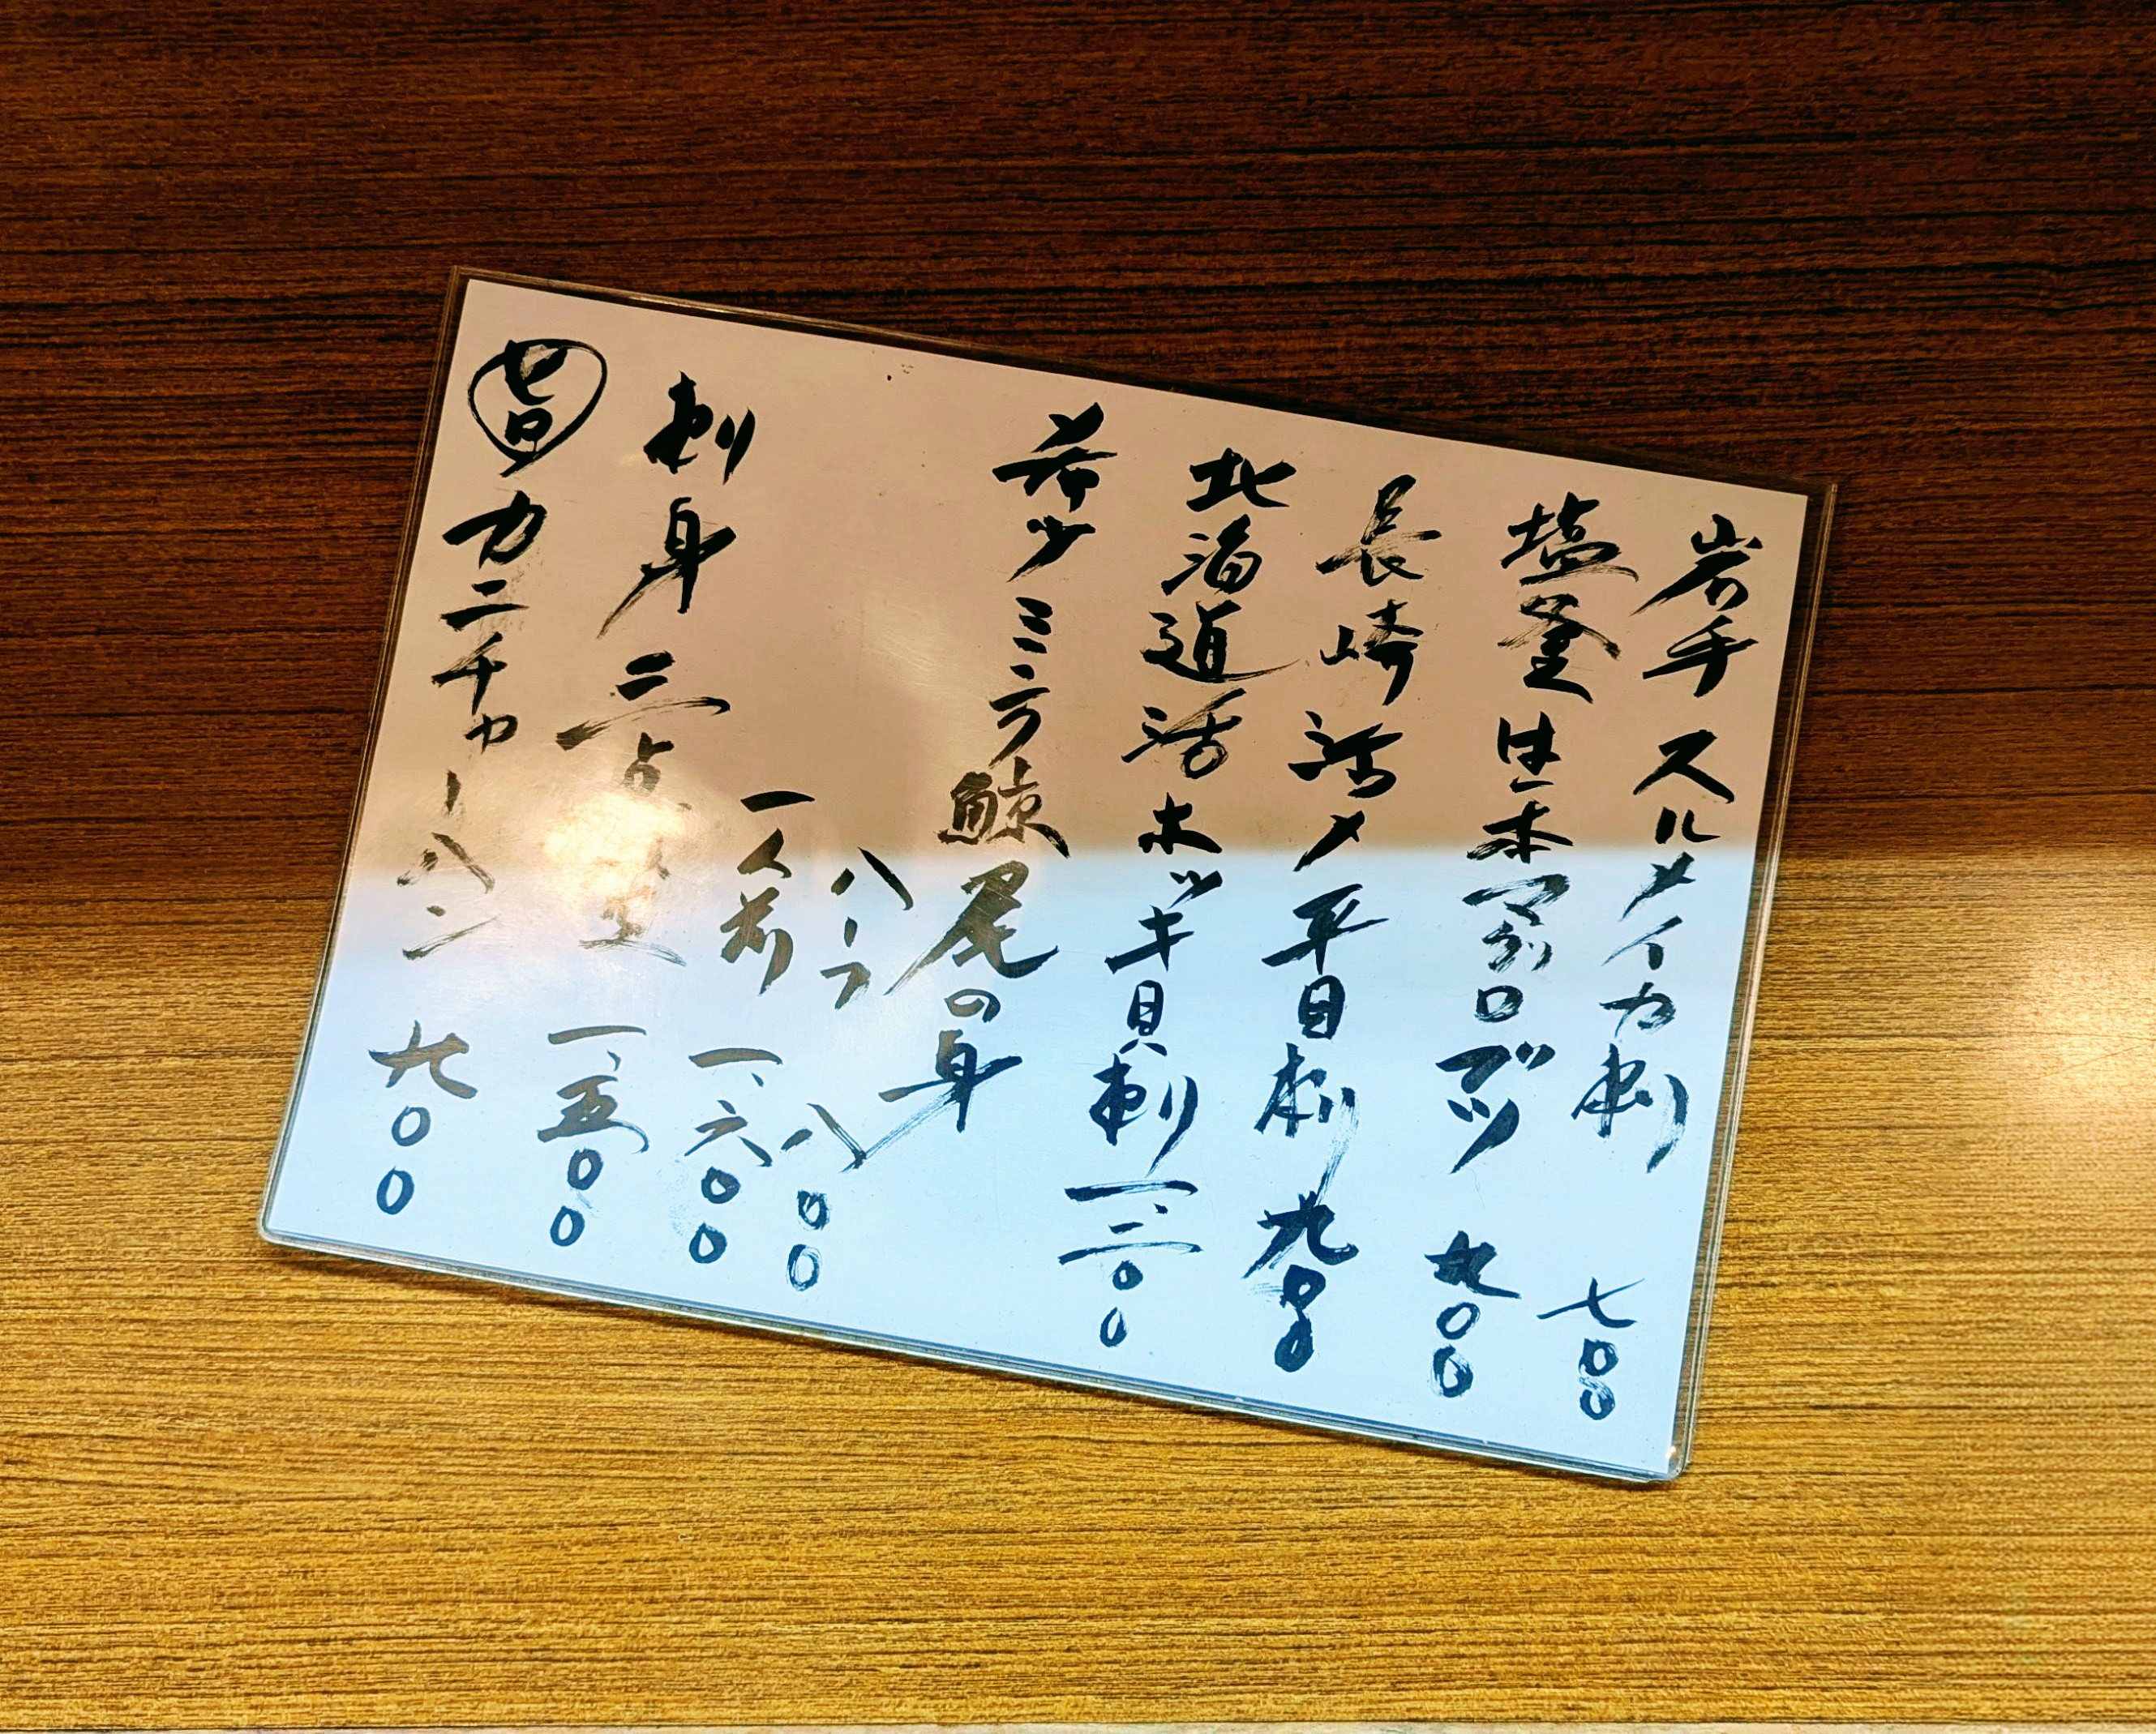 岩手スルメイカ刺 七〇〇
塩釜生本マグロブツ 九〇〇
長崎活〆平目刺 九〇〇
北海道活ホッキ貝刺 一、二〇〇
希少ミンク鯨尾の身
ハーフ 八〇〇
一人前 一、六〇〇
刺身三点盛 一、五〇〇
カニチャーハン 九〇〇